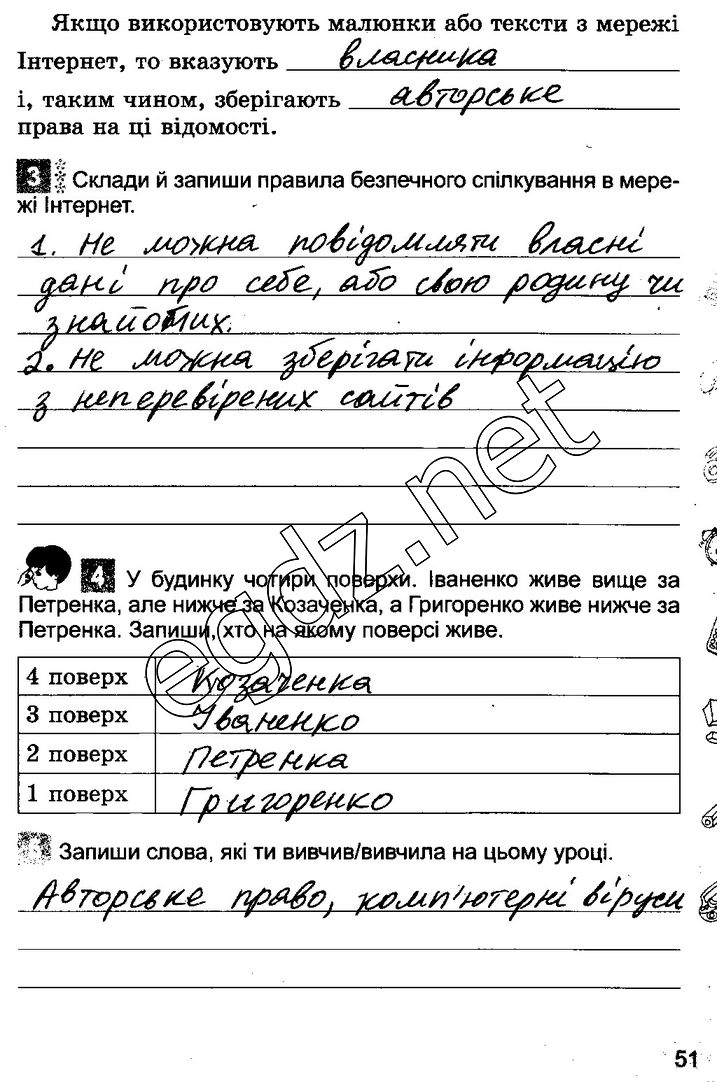 Якщо використовують малюнки або тексти з мережі
Інтернет, то вказують власника
і, таким чином, зберігають авторське
права на ці відомості.
3 Склади й запиши правила безпечного спілкування в мере-
жі Інтернет.
1. Не можна повідомляти власні
дані про себе, або свою родину чи
знайомих.
2. Не можна зберігати інформацію
з неперевірених сайтів
4 У будинку чотири поверхи. Іваненко живе вище за
Петренка, але нижче за Козаченка, а Григоренко живе нижче за
Петренка. Запиши, хто на якому поверсі живе.
4 поверх Козаченка
3 поверх Іваненко
2 поверх Петренка
1 поверх Григоренко
Запиши слова, які ти вивчив/вивчила на цьому уроці.
Авторське право, комп'ютерні віруси
51
egdz.net